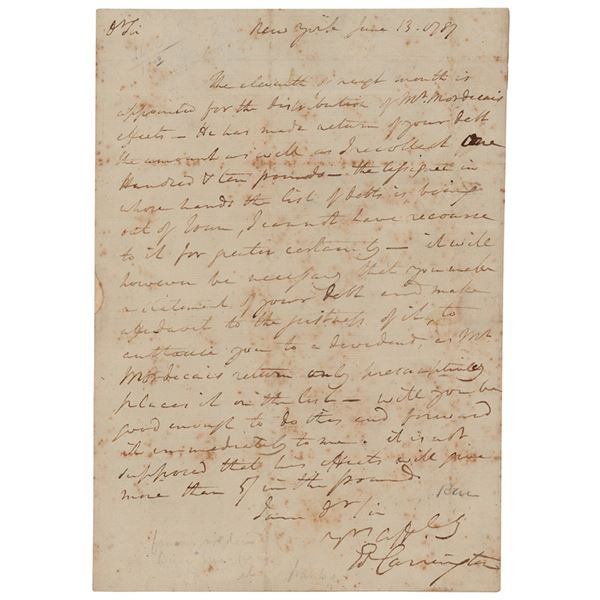 Dr Sir New York June 13. 1787
The eleventh of next month is
appointed for the distribution of Mr. Mordicais
effects – He has made return of your debt
the amount as well as I recollect One
Hundred & ten pounds – the assignee in
whose hands the list of debts is, being
out of Town, I cannot have recourse
to it for greater certainty – it will
however be necessary that you make
a statement of your debt and make
affidavit to the justness of it, to
authorise you to a dividend as Mr
Mordicais return only presumptively
places it on the list – will you be
good enough to do this and forward
it immediately to me. it is not
supposed that his effects will give
more than 5/ in the pound.
I am Dr Sir
Ed Carrington